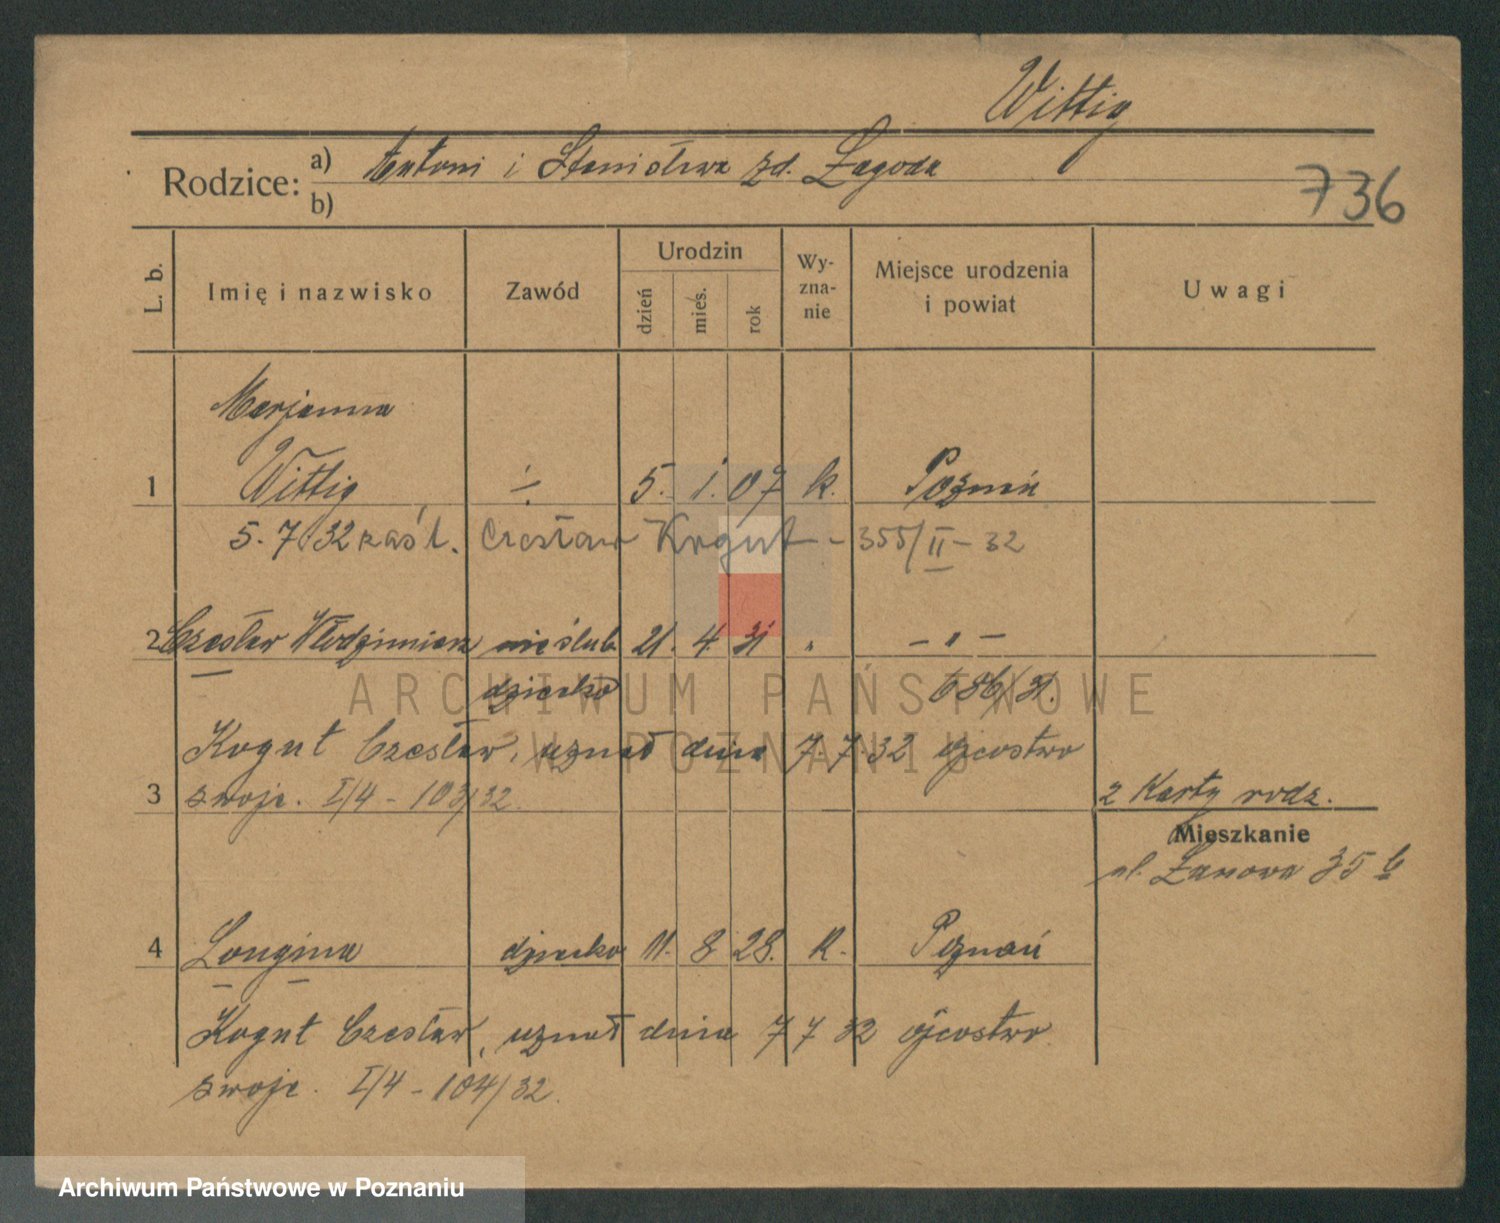 Wittig
Rodzice: a) Antoni i Stanisława zd. Łagoda
b)
736
L. b. Imię i nazwisko Zawód Urodzin dzień mies. rok Wyznanie Miejsce urodzenia i powiat Uwagi
Marjanna
1 Wittig ÷ 5. 1. 07 k. Poznań
5. 7. 32 zaśl. Czesław Kogut - 355/II - 32
2 Czesław Włodzimierz nieślub. 21. 4. 31 " - " -
dziecko 686/31.
Kogut Czesław, uznał dnia 7. 7. 32 ojcostwo
3 swoje. I/4 - 103/32. 2 Karty rodz.
Mieszkanie
ul. Łanowa 35 b
4 Longina dziecko 11. 8 28. k. Poznań
Kogut Czesław, uznał dnia 7 7 32 ojcostwo
swoje. I/4 - 104/32.
ARCHIWUM PAŃSTWOWE
W POZNANIU
Archiwum Państwowe w Poznaniu